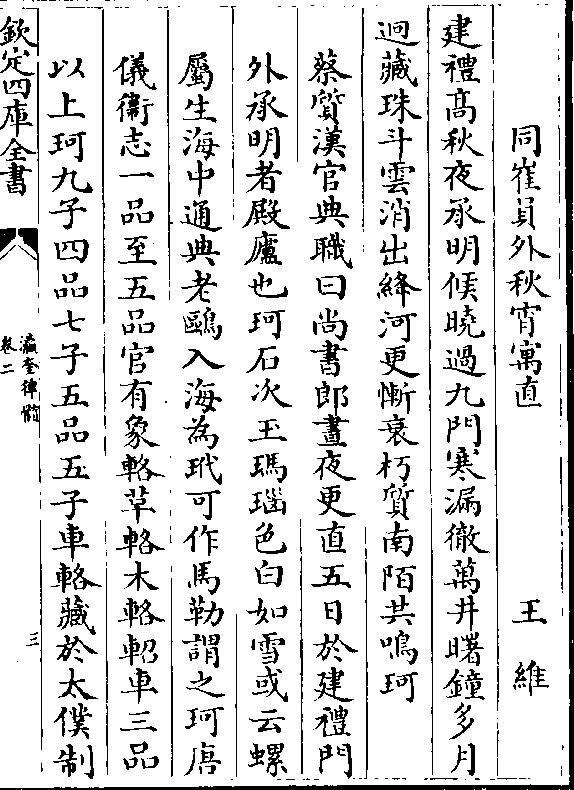 同崔員外秋宵寓直　王維
建禮髙秋夜承明候曉過九門寒漏徹萬井曙鐘多月
迥藏珠斗雲消出絳河更慚衰朽質南陌共鳴珂
蔡質漢官典職曰尚書郎晝夜更直五日於建禮門
外承明者殿廬也珂石次玉瑪瑙色白如雪或云螺
屬生海中通典老鷗入海為玳可作馬勒謂之珂唐
儀衛志一品至五品官有象輅草輅木輅軺車三品
以上珂九子四品七子五品五子車輅藏於太僕制
欽定四庫全書
瀛奎律髓
卷二
三